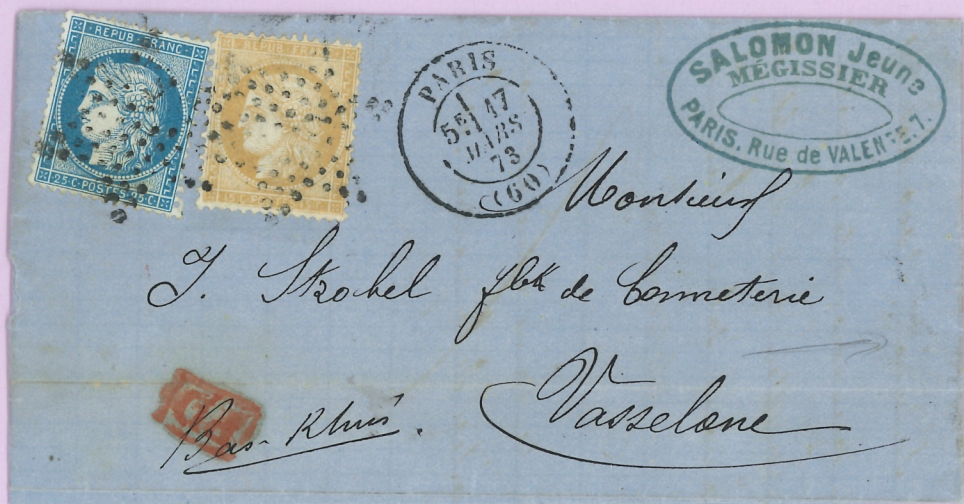 REPUB·FRANC·
25 C·POSTES·25 C·
REPUB·FRANC·
PARIS
5E 17
MARS
73
(60)
SALOMON Jeune
MÉGISSIER
PARIS. Rue de VALENCE.7.
Monsieur
J. Strohel fbt de Bonneterie
Vasselone
Bas Rhin.
PD